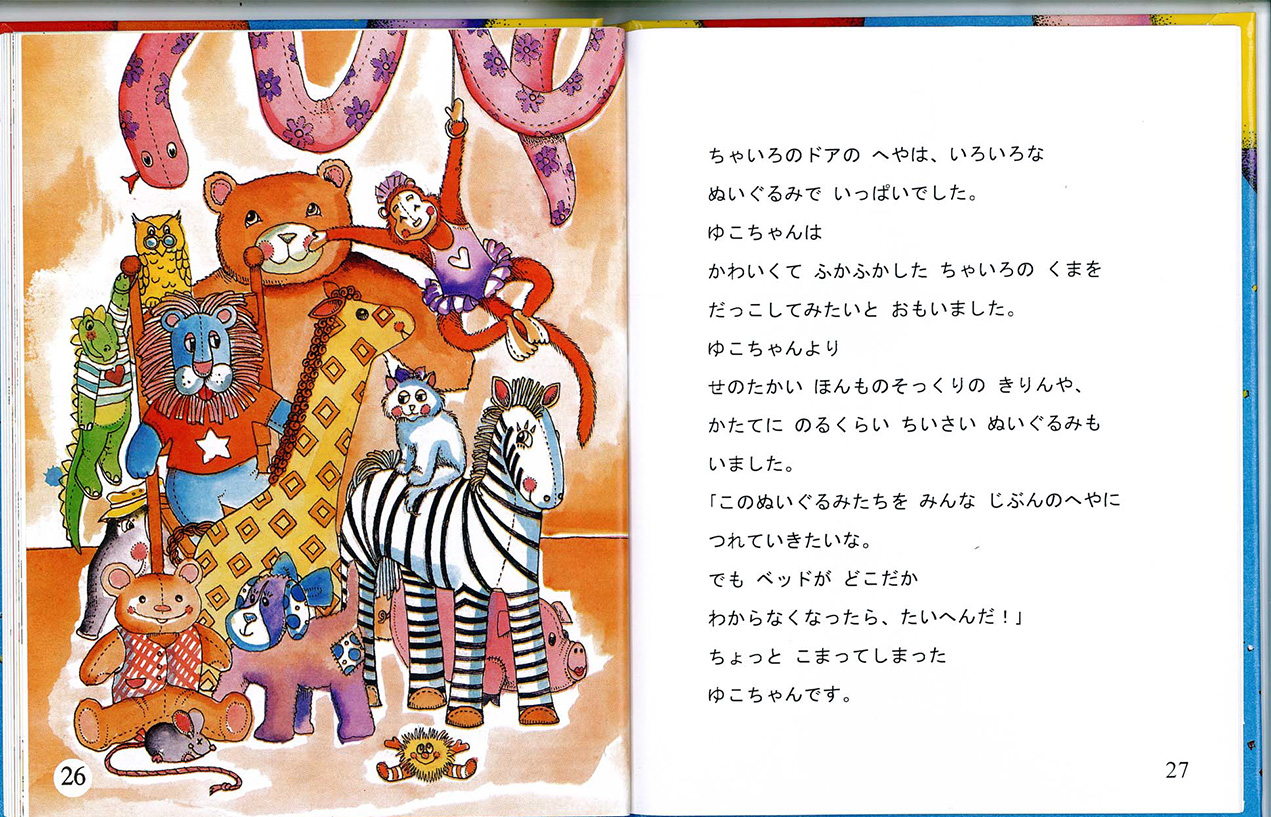 ちゃいろのドアの へやは、いろいろな
ぬいぐるみで いっぱいでした。
ゆこちゃんは
かわいくて ふかふかした ちゃいろの くまを
だっこしてみたいと おもいました。
ゆこちゃんより
せのたかい ほんものそっくりの きりんや、
かたてに のるくらい ちいさい ぬいぐるみも
いました。
「このぬいぐるみたちを みんな じぶんのへやに
つれていきたいな。
でも ベッドが どこだか
わからなくなったら、たいへんだ！」
ちょっと こまってしまった
ゆこちゃんです。
26
27